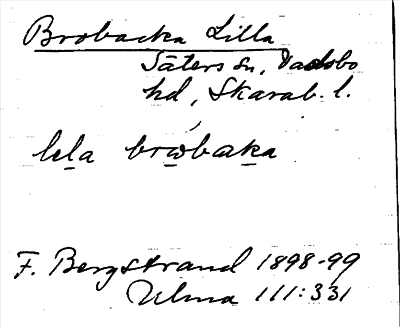 Brobacka Lilla
Säters sn, Vadsbo
hd, Skarab. l.
lɩla brωbaka
F. Bergstrand 1898-99
Ulma 111:331